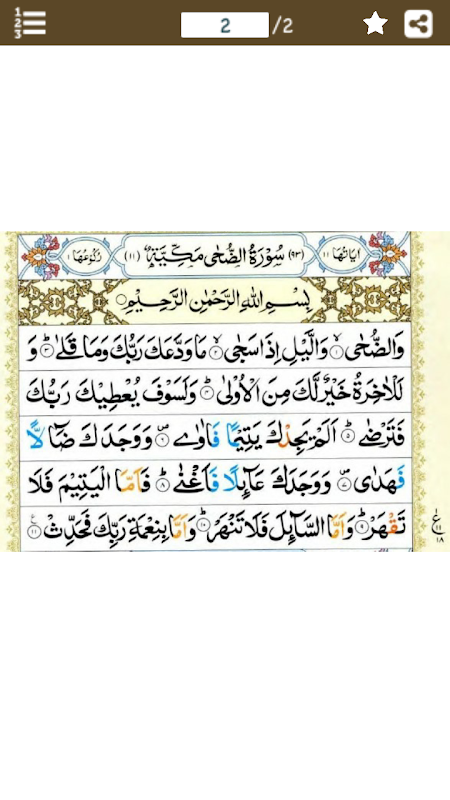 2 /2
اٰیَاتُهَا ۱۱ (۹۳) سُوْرَةُ الضُّحٰى مَكِّیَّةٌ (۱۱) رُكُوْعُهَا ۱
بِسْمِ اللهِ الرَّحْمٰنِ الرَّحِیْمِ
وَالضُّحٰىۙ۱ وَالَّیْلِ اِذَا سَجٰىۙ۲ مَا وَدَّعَكَ رَبُّكَ وَمَا قَلٰىؕ۳ وَ
لَلْاٰخِرَةُ خَیْرٌ لَّكَ مِنَ الْاُوْلٰىؕ۴ وَلَسَوْفَ یُعْطِیْكَ رَبُّكَ
فَتَرْضٰىؕ۵ اَلَمْ یَجِدْكَ یَتِیْمًا فَاٰوٰى۪۶ وَوَجَدَكَ ضَآلًّا
فَهَدٰى۪۷ وَوَجَدَكَ عَآىِٕلًا فَاَغْنٰىؕ۸ فَاَمَّا الْیَتِیْمَ فَلَا
تَقْهَرْؕ۹ وَاَمَّا السَّآىِٕلَ فَلَا تَنْهَرْؕ۱۰ وَاَمَّا بِنِعْمَةِ رَبِّكَ فَحَدِّثْ۠۱۱
ع ۱۱ ۱۸